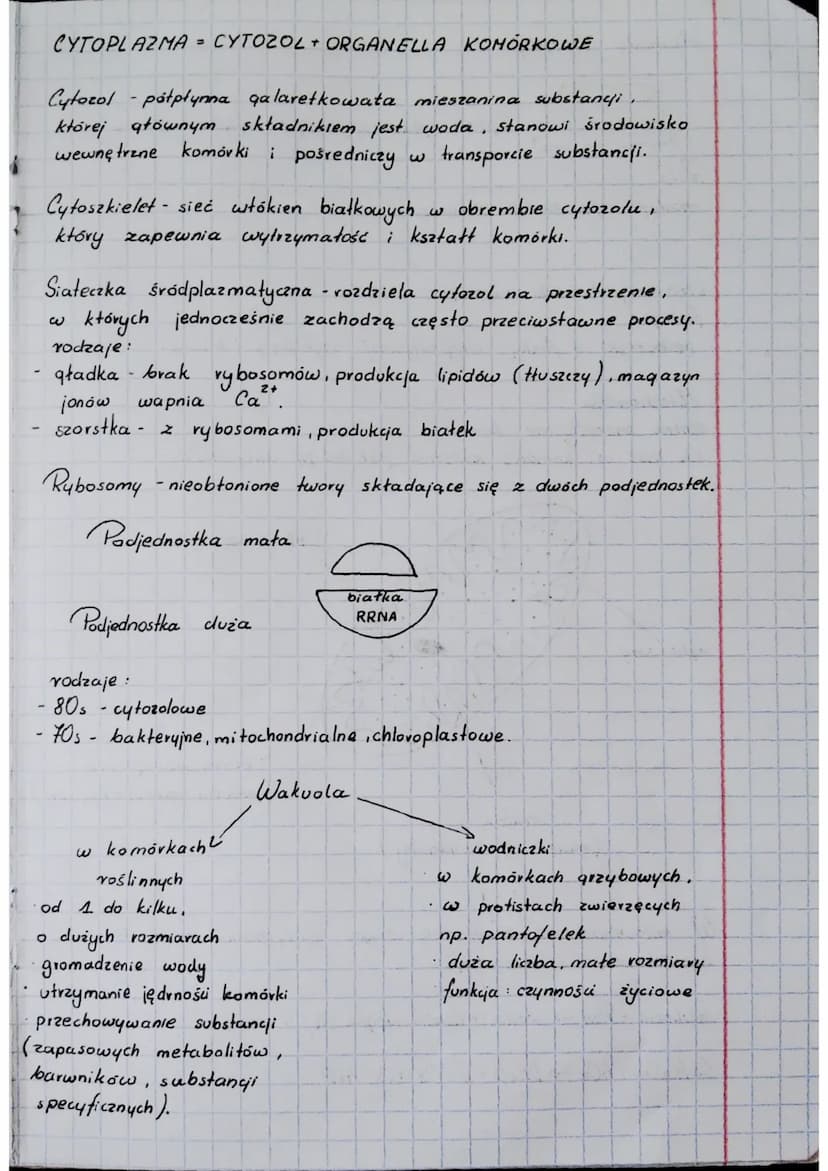 CYTOPLAZMA = CYTOZOL + ORGANELLA KOMÓRKOWE
Cytozol - półpłynna galaretkowata mieszanina substancji,
której głównym składnikiem jest woda, stanowi środowisko
wewnętrzne komórki i pośredniczy w transporcie substancji.
Cytoszkielet - sieć włókien białkowych w obrembie cytozolu,
który zapewnia wytrzymałość i kształt komórki.
Siateczka śródplazmatyczna - rozdziela cytozol na przestrzenie,
w których jednocześnie zachodzą często przeciwstawne procesy.
rodzaje:
- gładka - brak rybosomów, produkcja lipidów (tłuszczy), magazyn
jonów wapnia Ca²⁺.
- szorstka - z rybosomami, produkcja białek
Rybosomy - nieobłonione twory składające się z dwóch podjednostek.
Podjednostka mała
białka
RRNA
Podjednostka duża
rodzaje:
- 80s - cytozolowe
- 70s - bakteryjne, mitochondrialne, chloroplastowe.
Wakuola
w komórkach
roślinnych
· od 1 do kilku,
o dużych rozmiarach
· gromadzenie wody
· utrzymanie jędrności komórki
· przechowywanie substancji
(zapasowych metabolitów,
barwników, substancji
specyficznych).
wodniczki
w komórkach grzybowych,
· w protistach zwierzęcych
np. pantofelek
· duża liczba, małe rozmiary
funkcja: czynności życiowe